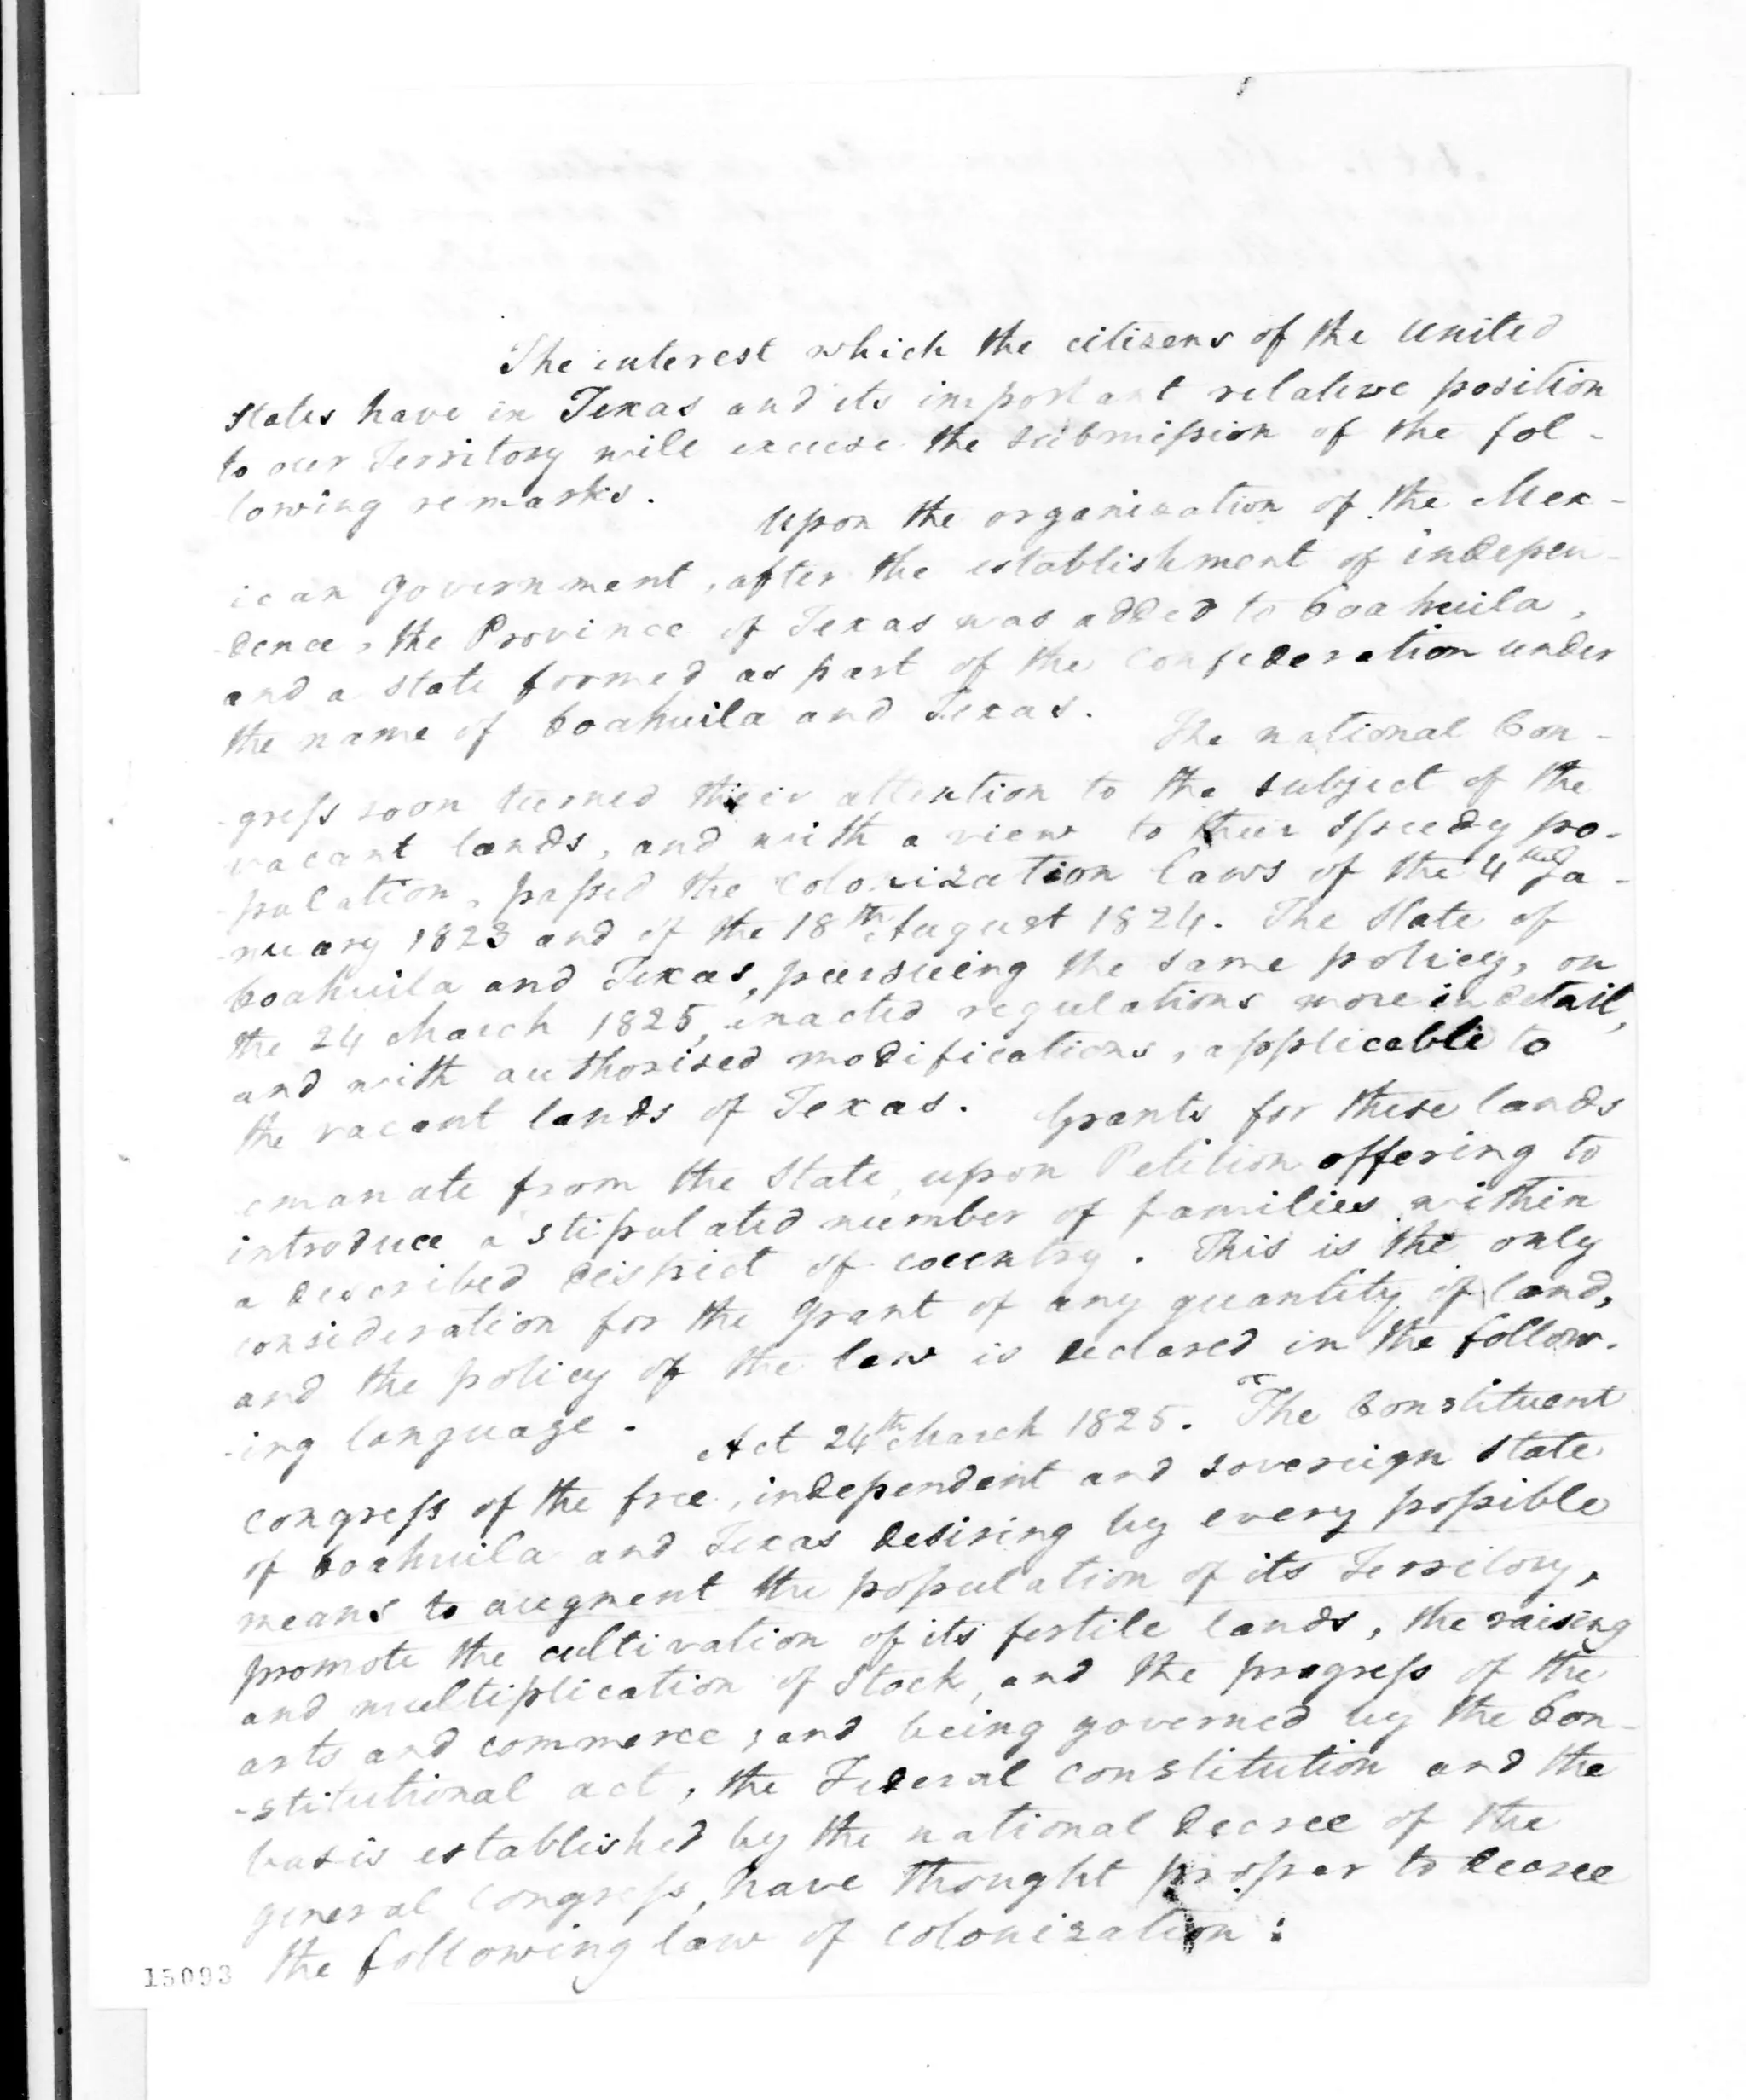 The interest which the citizens of the United
States have in Texas and its important relative position
to our Territory will excuse the submission of the fol-
lowing remarks.
Upon the organization of the Mex-
ican government, after the establishment of indepen-
-dence, the Province of Texas was added to Coahuila,
and a state formed as part of the confederation under
the name of Coahuila and Texas.
The national Con-
-gress soon turned their attention to the subject of the
vacant lands, and with a view to their speedy po-
-pulation, passed the colonization laws of the 4th Ja-
-nuary 1823 and of the 18th August 1824. The State of
Coahuila and Texas, pursueing the same policy, on
the 24 March 1825, enacted regulations more in detail,
and with authorised modifications, applicable to
the vacant lands of Texas.
Grants for these lands
emanate from the State, upon Petition offering to
introduce a stipulated number of families within
a described district of country. This is the only
consideration for the grant of any quantity of land,
and the policy of the law is declared in the follow-
-ing language.
Act 24th March 1825. "The Constituent
congress of the free, independent and sovereign state
of Coahuila and Texas desiring by every possible
means to augment the population of its Territory,
promote the cultivation of its fertile lands, the raising
and multiplication of Stock, and the progress of the
arts and commerce; and being governed by the Con-
-stitutional act, the Federal constitution and the
basis established by the national decree of the
general Congress, have thought proper to decree
the following law of colonization:
15093